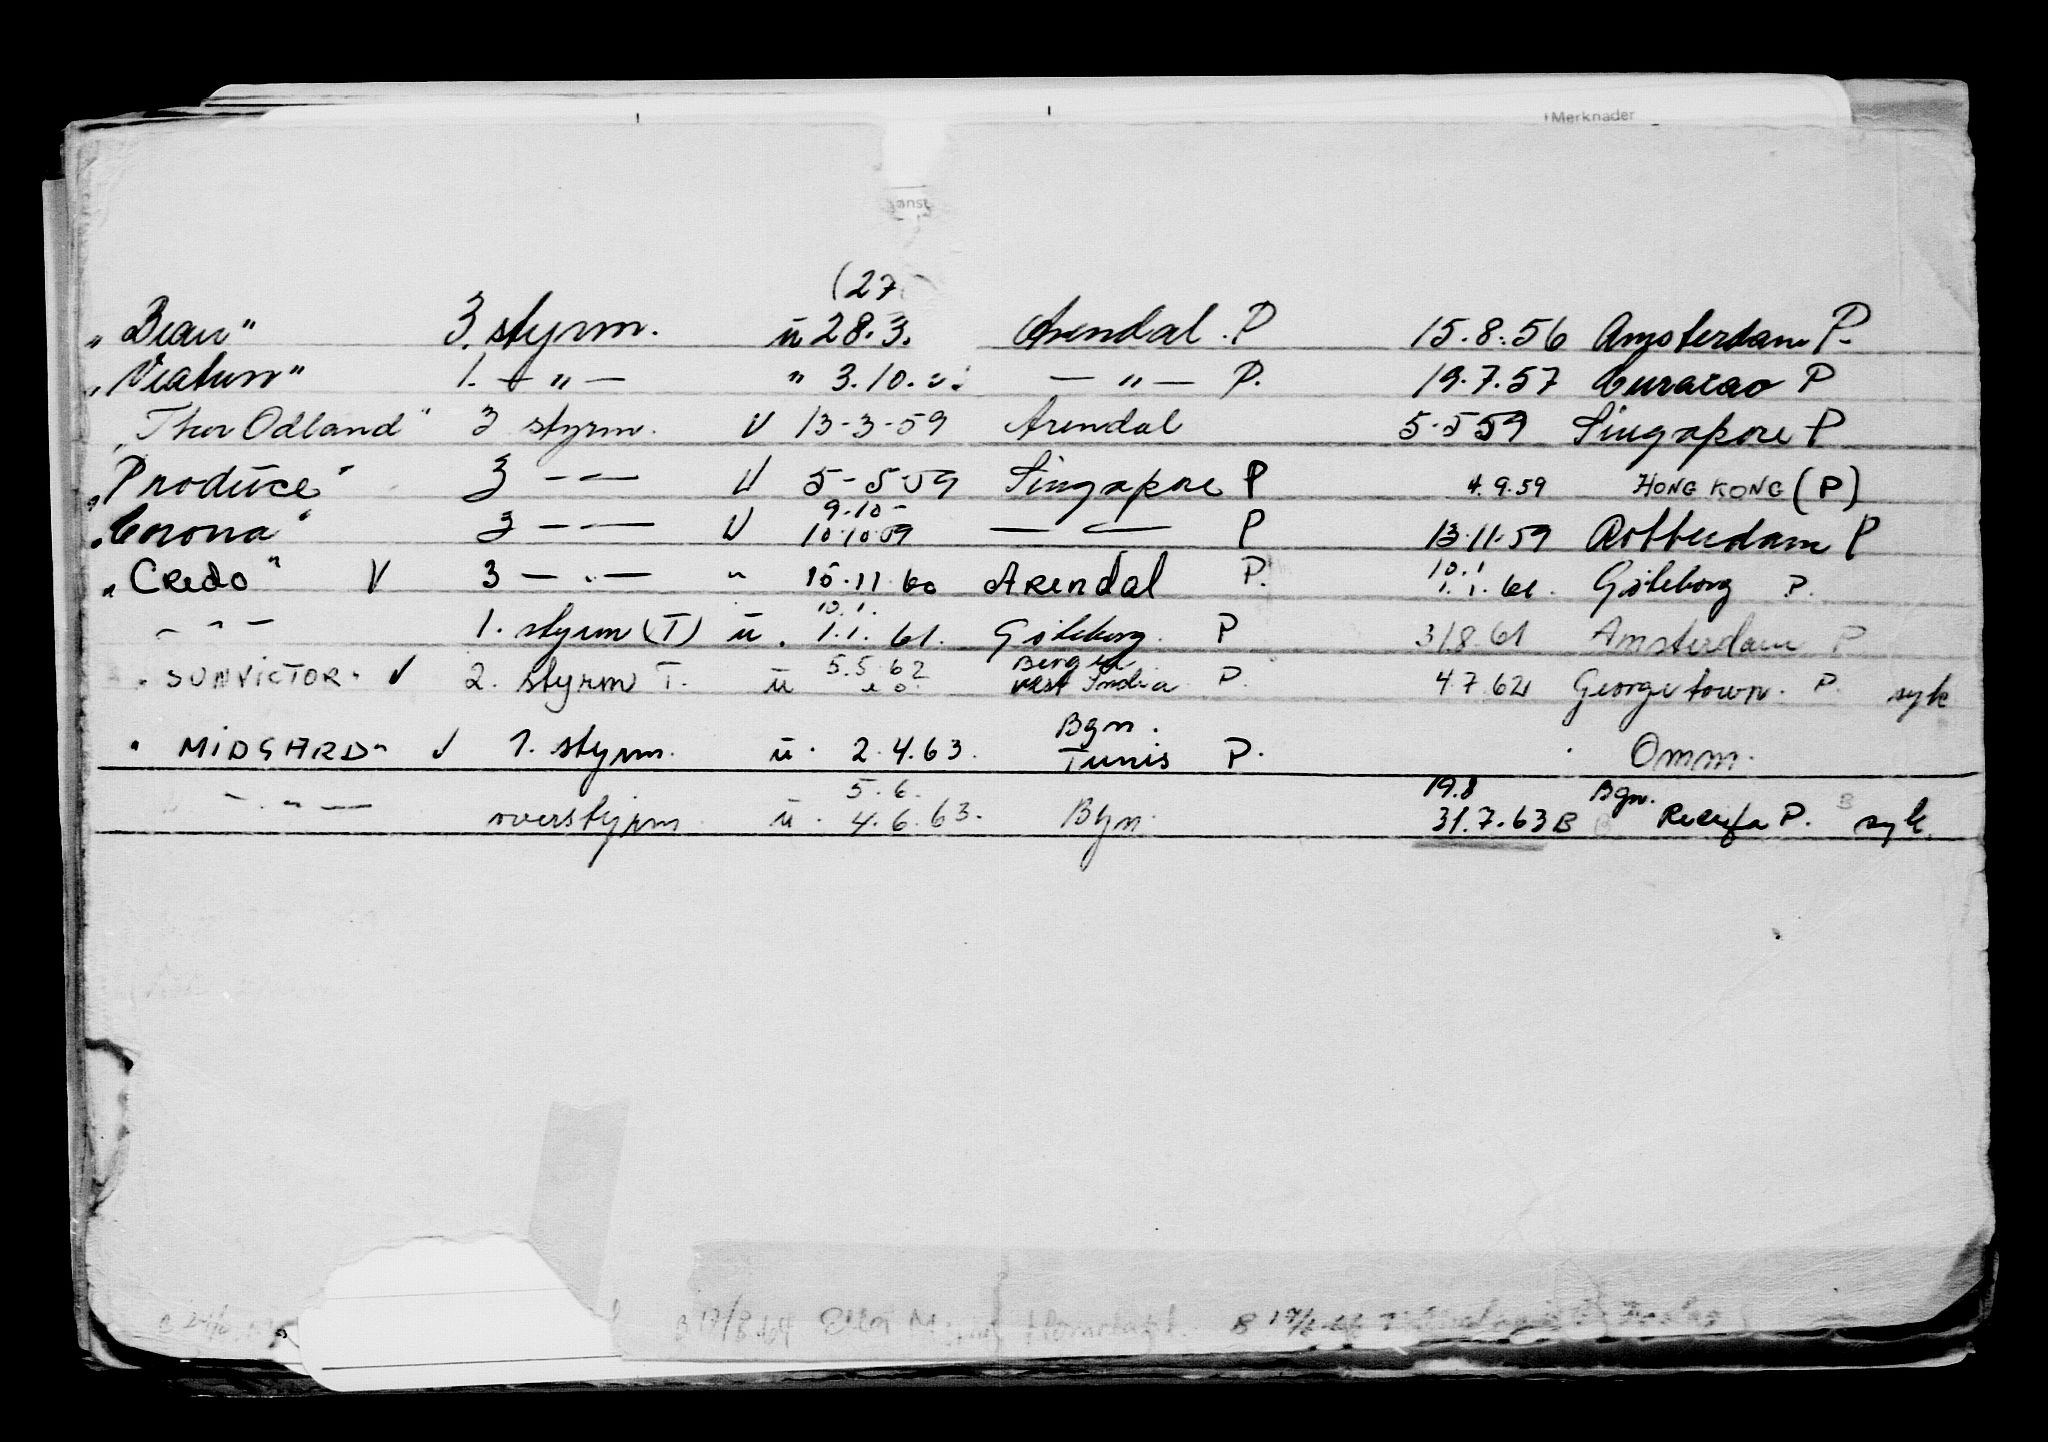 Merknader
anst
(27
"Bear" 3. styrm. ü 28.3. Arendal. P 15.8.56 Amsterdam P.
"Viator" 1. — " — " 3.10. — " — P. 19.7.57 Curacao P
"Thor Odland" 3 styrm. V 13-3-59 Arendal 5-5 59 Singapore P
"Produce" 3 - - — V 5-5-59 Singapore P 4.9.59 HONG KONG (P)
9.10-
"Corona" 3 — - — V 10-10-59 — — P 13-11-59 Rotterdam P
10.1
"Credo" V 3 — " — " 15.11.60 Arendal P. 1.1.61. Göteborg P.
10.1.
— " — 1. styrm (T) ü. 1.1.61. Göteborg. P 31.8.61 Amsterdam P
5.5.62 Bergen
"SUNVICTOR" V 2. styrm T. ü Vest India P. 4.7.62 Georgetown. P. syk
Bgn.
"MIDGARD" V 1. styrm. ü. 2.4.63. Tunis P. Omm.
5.6. 19.8 Bgn.
— " — overstyrm ü. 4.6.63. Bgn. 31.7.63 B Recife P. syk.
B 17/8-64 Ella